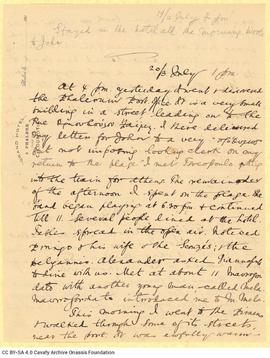 19/2 July 7 pm
Stayed in the hotel all the morning. Wrote
to John
20/3 July 1 pm
At 4 pm yesterday I went & discovered
the Phaleron Post. It is a very small
building in a street leading on to the
I there delivered
my letter for John to a very
but not imposing looking clerk. On my
return to the plage I met
into the train for Athens. The remainder
of the afternoon I spent on the plage. The
band began playing at 6.30 pm & continued
till 11. Several people dined at the hotel.
Tables spread in the open air. Noticed
& his wife & the
Alexander asked
to dine with us. Met at about 11 Mavrogor
dato with another young man called Melas
Mavrogordato introduced me to Mr Melas.
This morning I went to the Piraeus
& walked through some of its streets,
near the port. It was awfully warm
GRAND HOTEL
PHALÈRE
CC BY-SA 4.0 Cavafy Archive Onassis Foundation